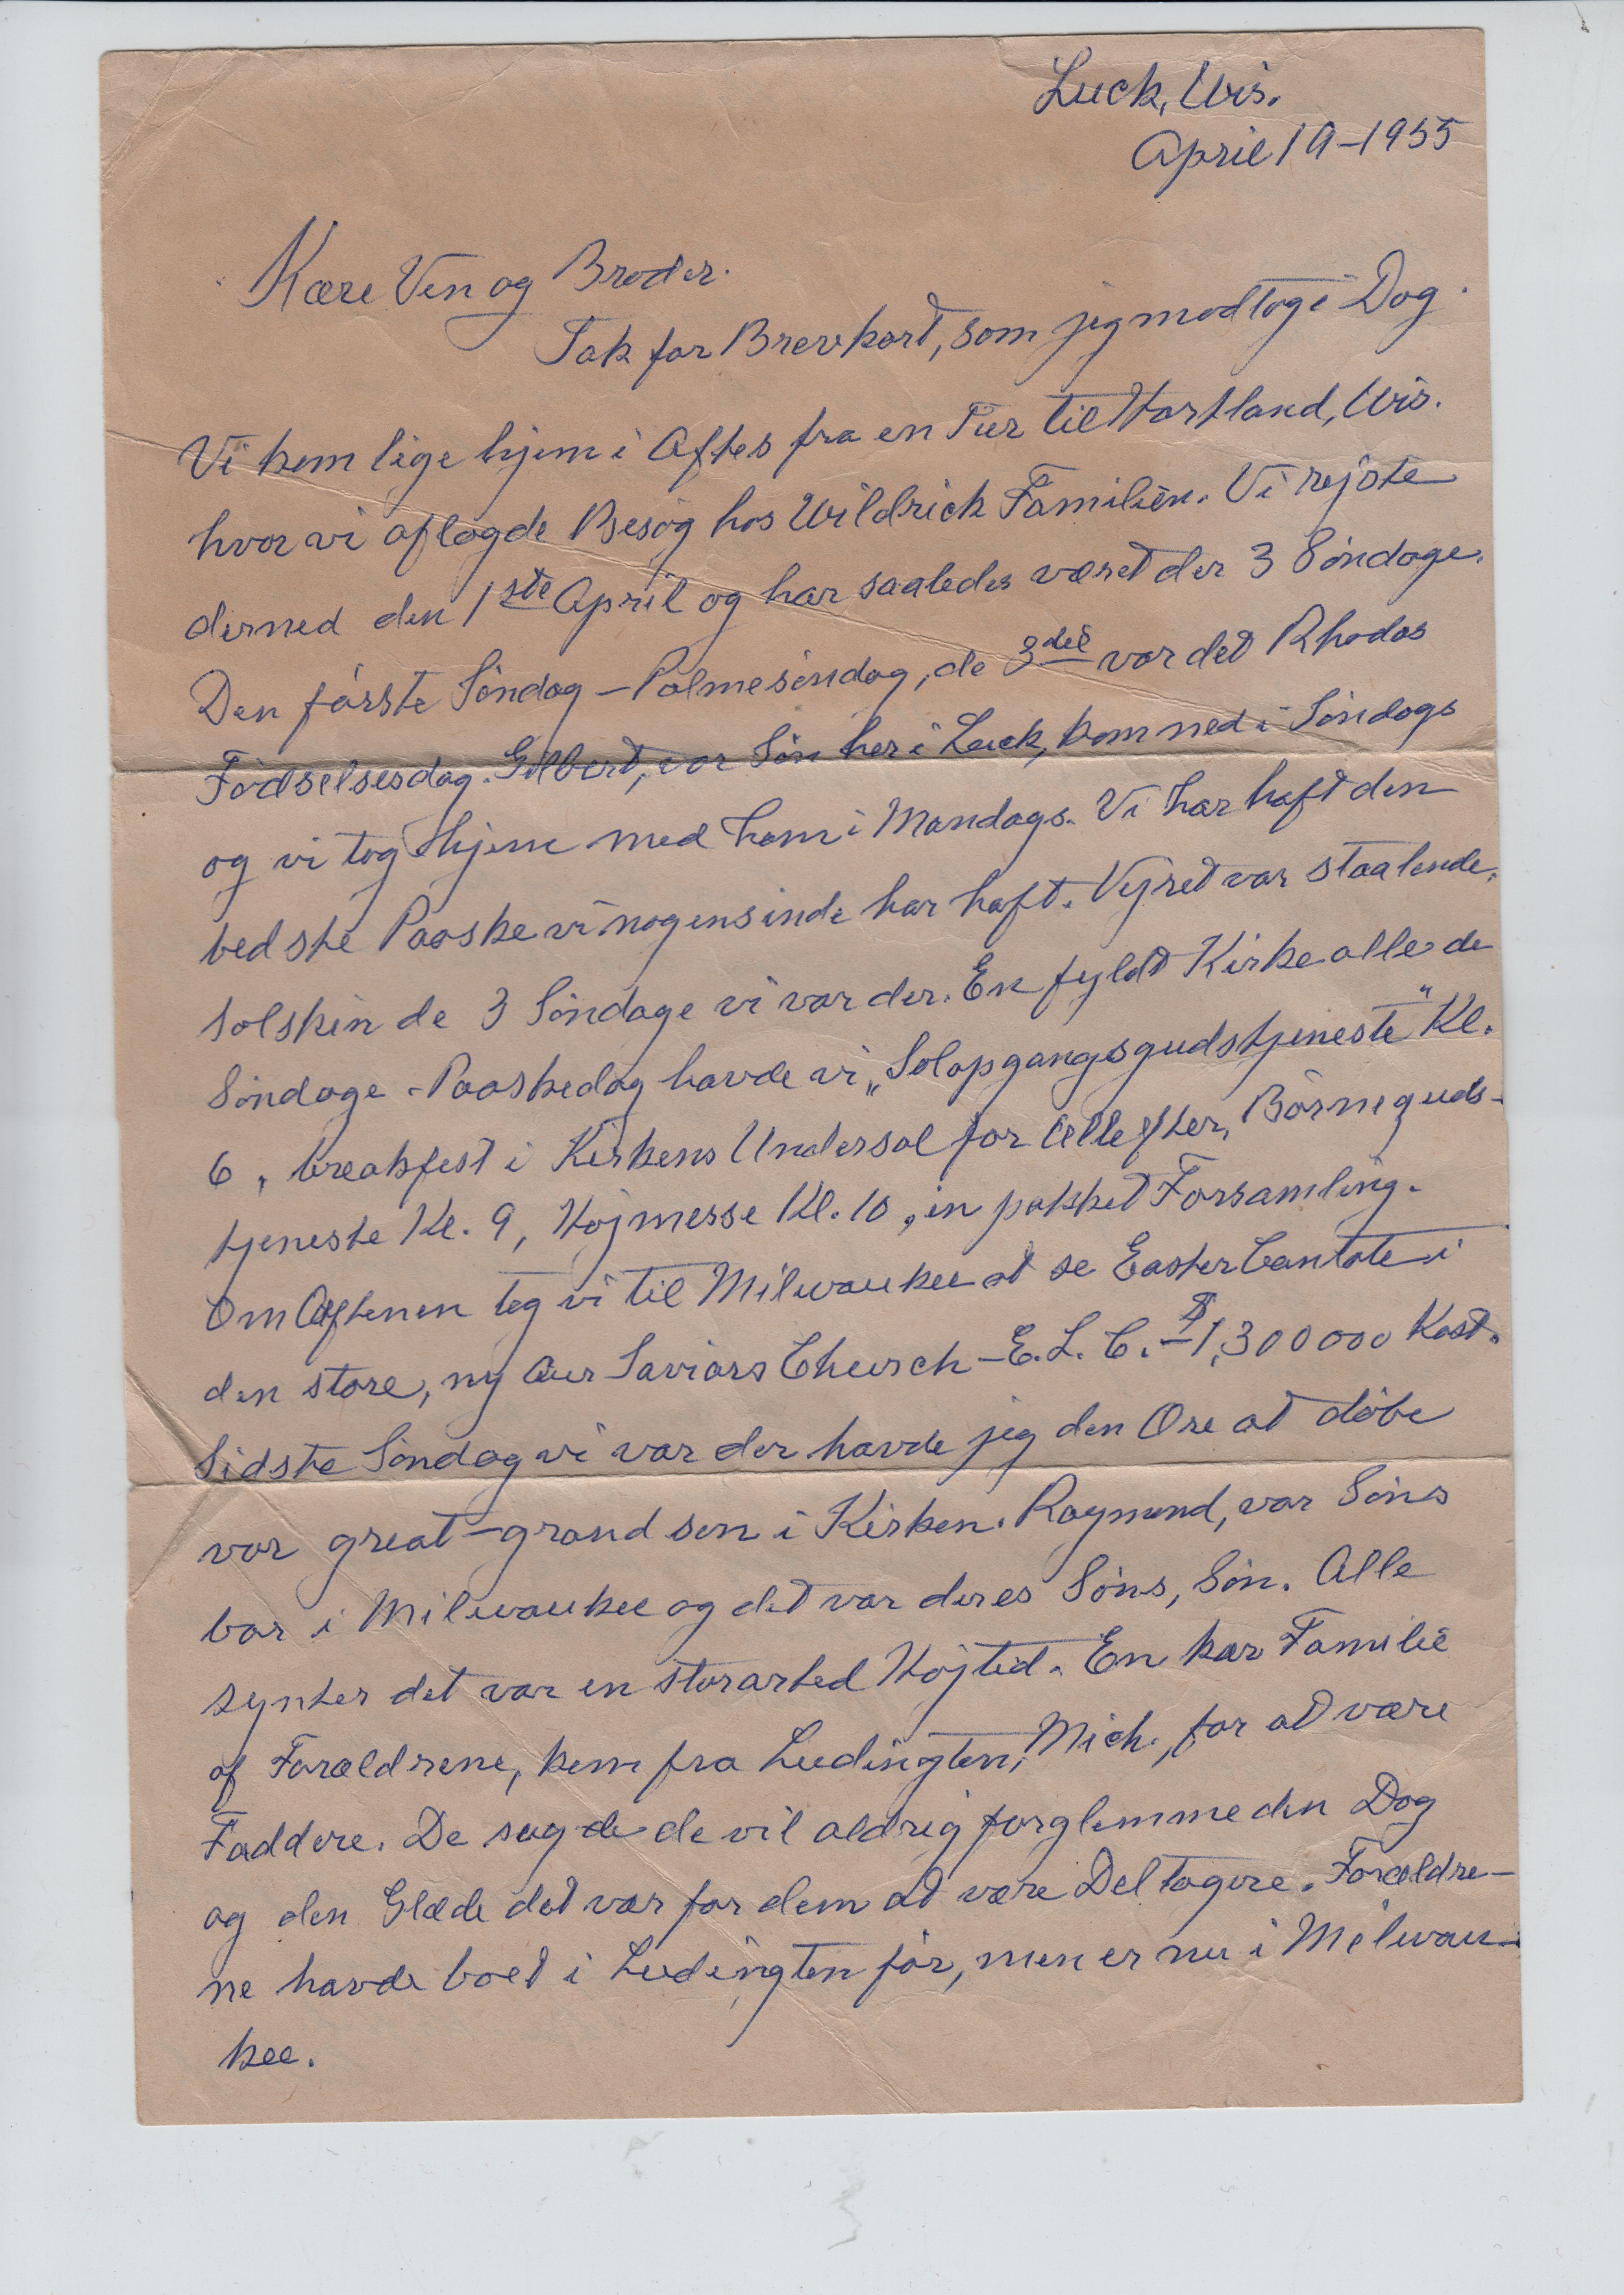 Luck, Wis.
April 19-1955
Kære Ven og Broder.
Tak for Brevkort, som jeg modtog i Dag.
Vi kom lige hjem i Aftes fra en Tur til Hartland, Wis.
hvor vi aflagde Besøg hos Wildrick Familien. Vi rejste
derned den 1ste April og har saaledes været der 3 Søndage.
Den første Søndag – Palmesøndag, de 3die var det Rhodas
Fødselsesdag. Gilbert, vor Søn her i Luck, kom ned i Søndags
og vi tog hjem med ham i Mandags. Vi har haft den
bedste Paaske vi nogensinde har haft. Vejret var staalende,
Solskin de 3 Søndage vi var der. En fyldt Kirke alle de
Søndage - Paaskedag havde vi „Solopgangsgudstjeneste" Kl.
6, breakfest i Kirkens Undersal for alle efter, Børneguds-
tjeneste Kl. 9, Højmesse Kl. 10, en pakket Forsamling.
Om Aftenen tog vi til Milwaukee at se Easter Cantate i
den store, ny Our Saviors Church – E.L.C. – $1,300000 Kost.
Sidste Søndag vi var der havde jeg den Ære at døbe
vor great-grandson i Kirken. Raymond, vor Søns
bor i Milwaukee og det var deres Søns, Søn. Alle
syntes det var en storarted Højtid. En kær Familie
af Forældrene, kom fra Ludington, Mich., for at være
Faddere. De sagde de vil aldrig forglemme den Dag
og den Glæde det var for dem at være Deltagere. Forældre-
ne havde boet i Ludington før, men er nu i Milwau-
kee.